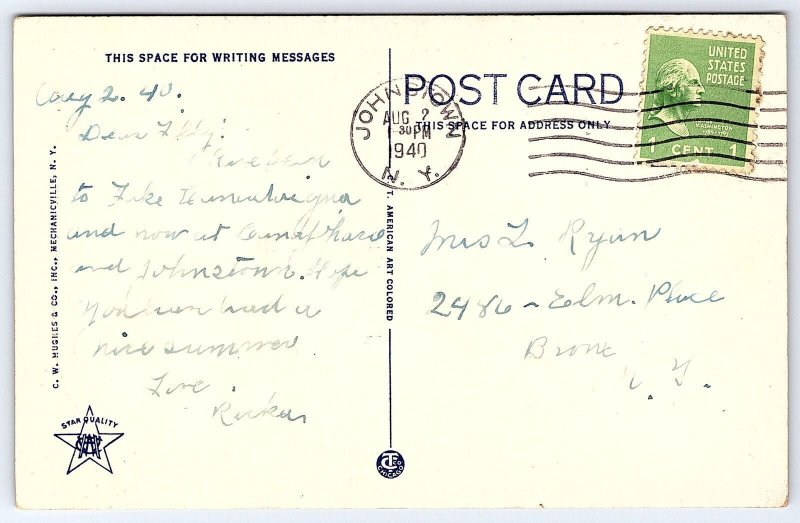 THIS SPACE FOR WRITING MESSAGES
2. 40.
Dear
to Lake
and now at
and Johnstown. Hope
You have had a
nice summer
Love.
C. W. HUGHES & CO., INC., MECHANICVILLE, N. Y.
STAR QUALITY
C. T. AMERICAN ART COLORED
CHICAGO
POST CARD
THIS SPACE FOR ADDRESS ONLY
JOHNSTOWN
AUG 2
30 PM
1940
N. Y.
UNITED
STATES
POSTAGE
WASHINGTON
1 CENT 1
Mrs L. Ryan
2486 ~ Elm. Place
Bronx
N. Y.